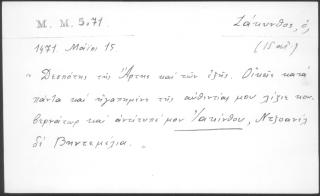 M. M. 5.71.
Ζάκυνθος, ὁ,
1471. Μαΐου 15
(15 αἰ.)
" Δεσπότης τῆς Ἄρτης καὶ τῶν ἑξῆς. Οἰκεῖε κατὰ
πάντα καὶ ἠγαπημένε τῆς αὐθεντίας μου
βερνάτωρ καὶ ἀντίτυπέ μου Ζακύνθου,
δὲ Βηντεμελια.